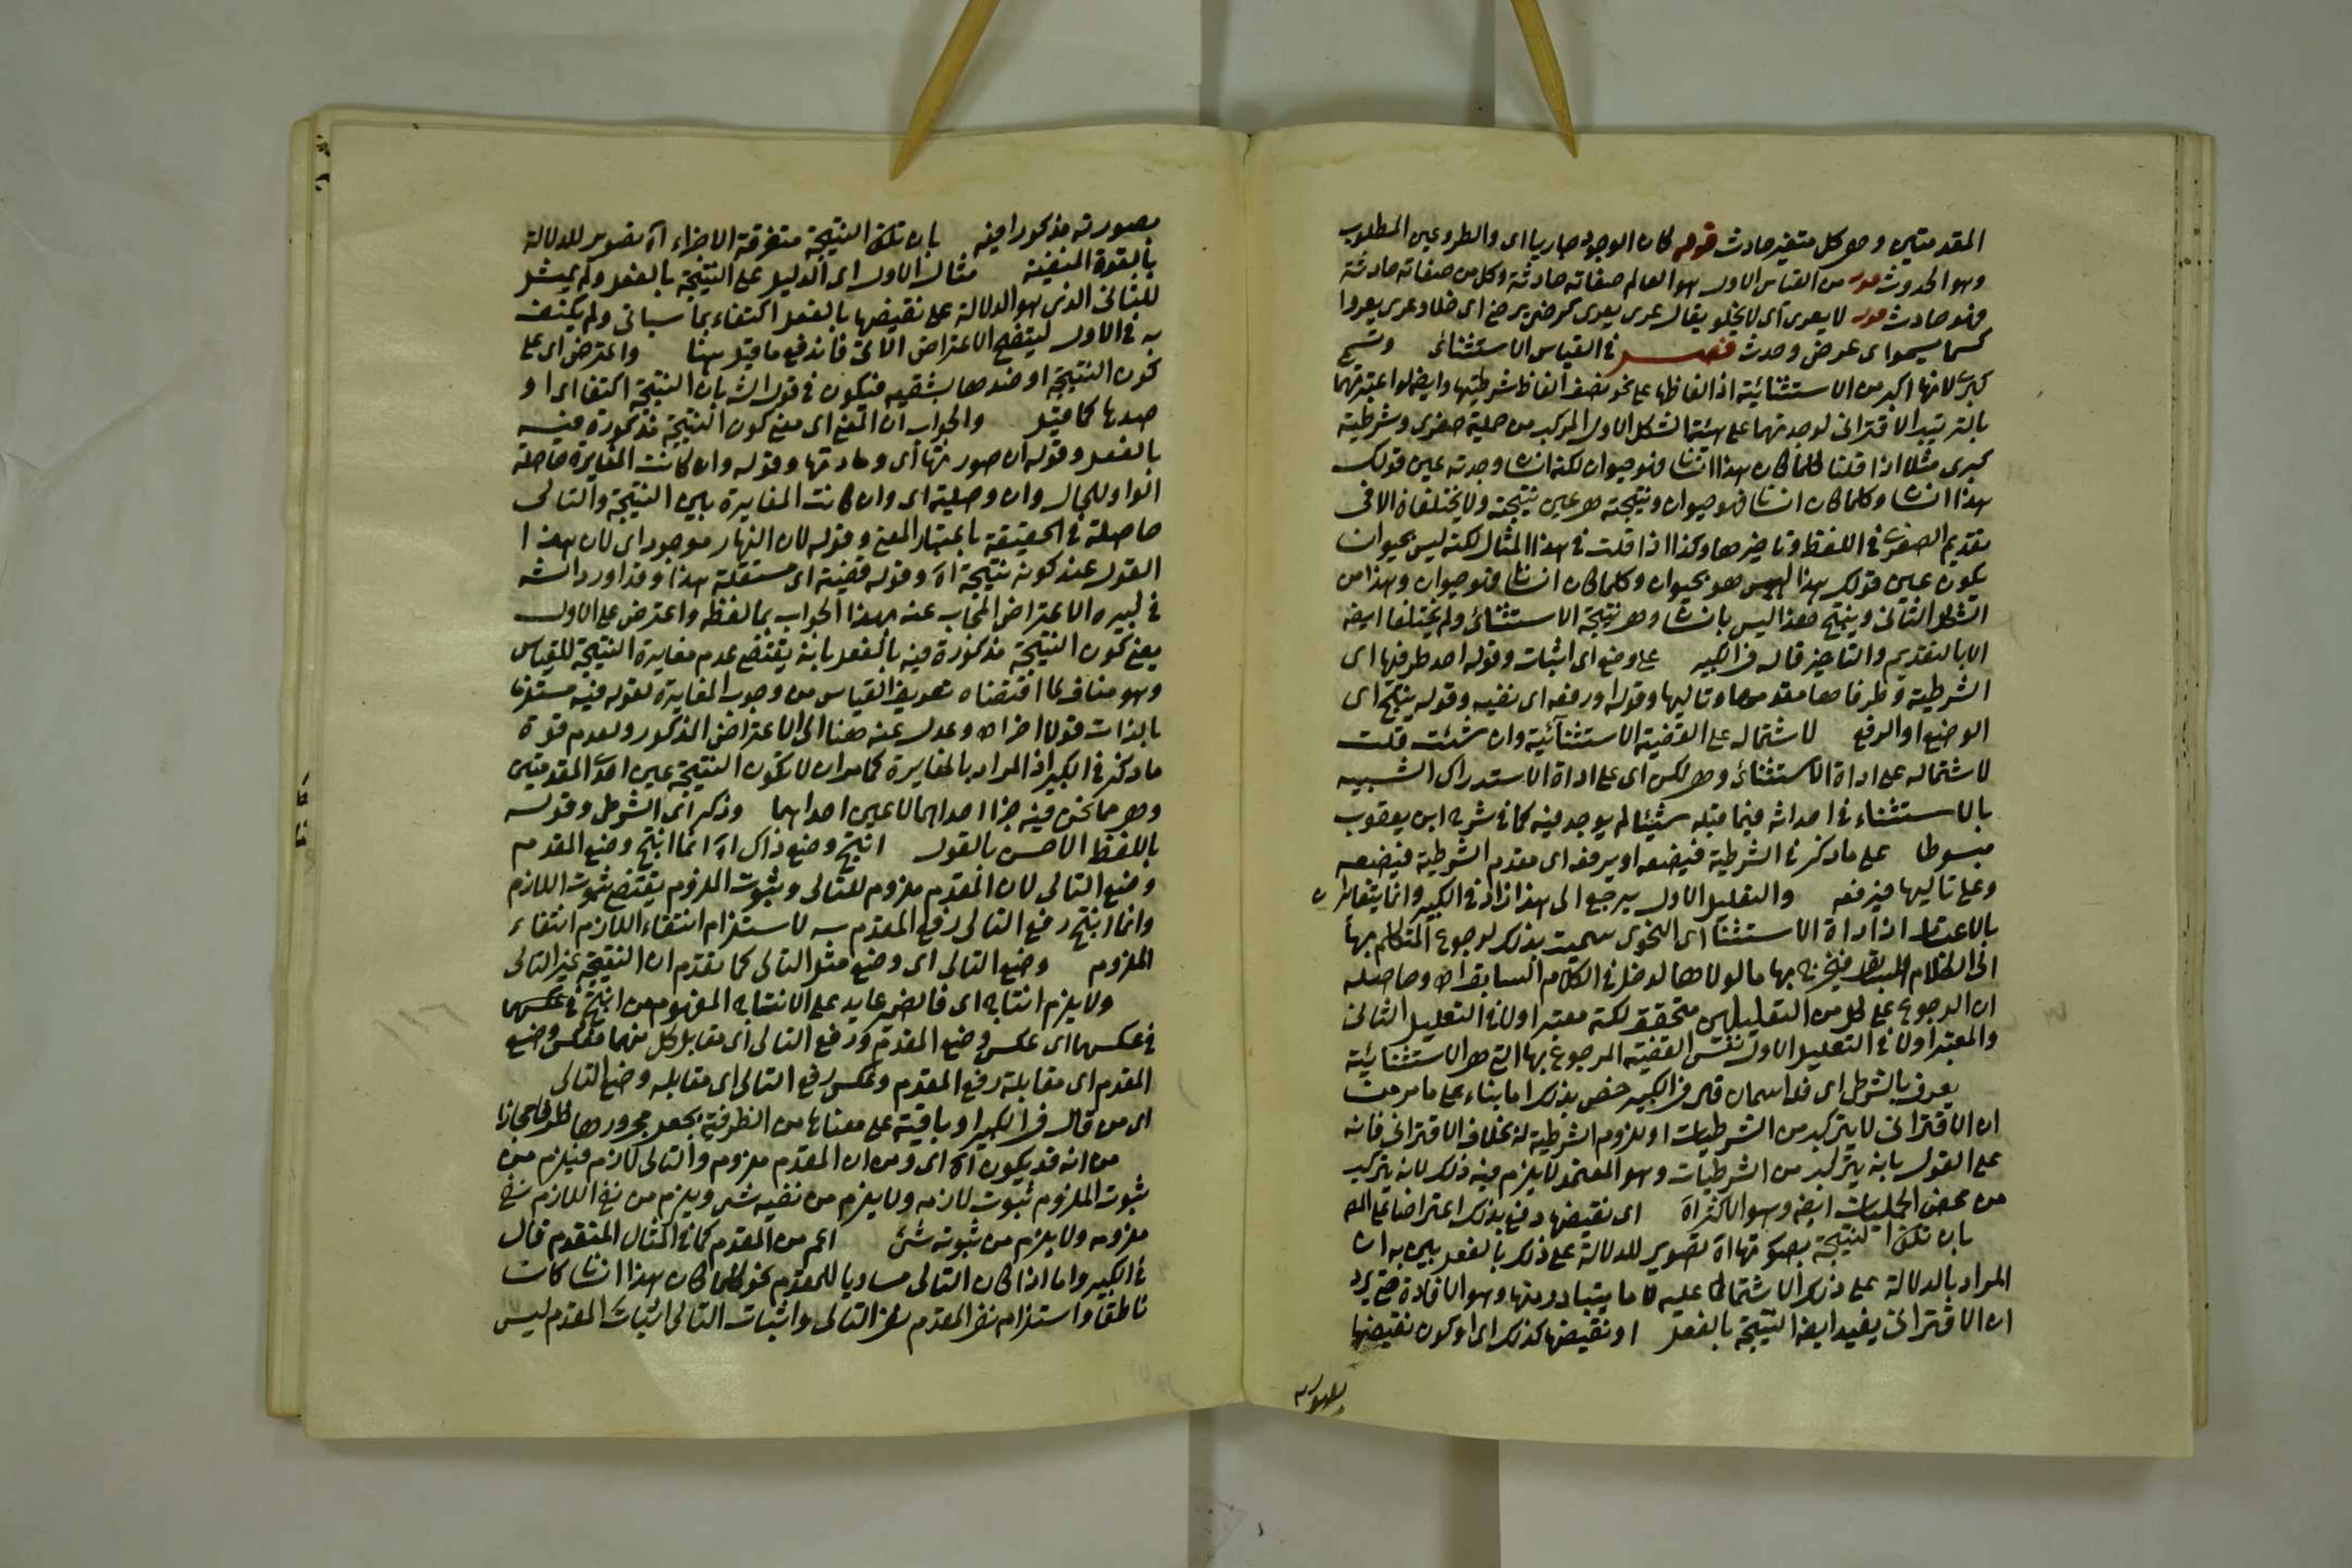 المقدمتين وهو كل متغير حادث قوله كان الوجود جاريا اى والطروعين المطلوب
وهو الحدوث قوله من القياس الاول هو العالم صفاته حادثة وكل من صفاته حادثة
فهو حادث قوله لا يعرى اى لا يخلو يقال عرى يعرى كرضى يرضى اى خلا وعرى يعروا
كسما يسموا اى عرض وحدث فصل في القياس الاستثنائى وتسمى
كبرى لانها اكبر من الاستثنائية اذ الفاظها على نحو نصف الفاظ شرطيتها وايضا لو اعتبرتهما
بالترتيب الاقترانى لوجدتهما على هيئة الشكل الاول المركب من حملية صغرى وشرطية
كبرى مثلا اذا قلنا كلما كان هذا انسانا فهو حيوان لكنه انسان وجدته عين قولك
هذا انسان وكلما كان انسانا فهو حيوان ونتيجته هو عين نتيجته ولا يختلفان الا فى
تقديم الصغرى في اللفظ وتاخيرها وكذا اذا قلت فى هذا المثال لكنه ليس بحيوان
يكون عين قولك هذا ليس هو بحيوان وكلما كان انسانا فهو حيوان وهذا من
الشكل الثانى وينتج هذا ليس بانسان وهو نتيجة الاستثنائى ولم يختلفا ايضا
الا بالتقديم والتاخير قاله فى الكبير على وضع اى اثبات وقوله احد طرفيها اى
الشرطية وطرفاها مقدمها وتاليها وقوله اورفعه اى نفيه وقوله ينتج اى
الوضع او الرفع لاشتماله على القضية الاستثنائية وان شئت قلت
لاشتماله على اداة الاستثنائى وهو لكن اى على اداة الاستدراك الشبيه
بالاستثناء فى احداثه فيما قبله شيئا لم يوجد فيه كما فى شرح ابن يعقوب
مبسوطا على ما ذكر فى الشرطية فيضعه او يرفعه اى مقدم الشرطية فيضعه
وعلى تاليها فيرفعه والتعليل الاول يرجع الى هذا زاد فى الكبير وانما يتغايران
بالاعتبار اذ اداة الاستثنا اى النحوى سميت بذلك لرجوع المتكلم بها
الى الكلام السابق فيخرج بها ما لولاها لدخل فى الكلام السابق اه وحاصله
ان الرجوع على كل من التعليلين متحقق لكنه معتبر اولا فى التعليل الثانى
والمعتبر اولا فى التعليل الاول نفس القضية المرجوع بها التى هو الاستثنائية
يعرف بالشرط اى فله اسمان قال فى الكبير خص بذلك اما بناء على ما مر من
ان الاقترانى لا يتركب من الشرطيات او للزوم الشرطية له بخلاف الاقترانى فانه
على القول بانه يتركب من الشرطيات وهو المعتمد لا يلزم فيه ذلك لانه يتركب
من محض الحمليات ايضا وهو الاكثر اه اى نقيضها دفع بذلك اعتراضا على المص
بان تكون النتيجة بصورتها اه تصوير للدلالة على ذلك بالفعل بين به ان
المراد بالدلالة على ذلك الاشتمال عليه لا ما يتبادر منها وهو الافادة حتى يرد
ان الاقترانى يفيد ايضا النتيجة بالفعل او نقيضها كذلك اى او كون نقيضها
بصورته مذكورا فيه بان تكون النتيجة متفرقة الاجزاء اه تصوير للدلالة
بالقوة المنفية مثال الاول اى الدليل على النتيجة بالفعل ولم يمثل
للثانى الذى هو الدلالة على نقيضها بالفعل اكتفاء بما سياتى ولم يكتف
به فى الاول ليتضح الاعتراض الاتى فاندفع ما قيل هنا واعترض اى على
كون النتيجة او ضدها بشقيه فيكون فى قول الش بان النتيجة اكتفا اى او
ضدها كما قيل والجواب ان المعنى اى معنى كون النتيجة مذكورة فيه
بالفعل وقوله ان صورتها اى ومادتها وقوله وان كانت المغايرة حاصلة
الواو للحال وان وصلية اى وان كانت المغايرة بين النتيجة والتالى
حاصلة فى الحقيقة باعتبار المعنى وقوله لان النهار موجود اى لان هذا
القول عند كونه نتيجة اه وقوله قضية اى مستقلة هذا وقد اورد الش
فى كبيره الاعتراض المجاب عنه بهذا الجواب بما لفظه واعترض على الاول
يعنى كون النتيجة مذكورة فيه بالفعل بانه يقتضى عدم مغايرة النتيجة للقياس
وهو مناف لما اقتضاه تعريف القياس من وجوب المغايرة لقوله فيه مستلزما
بالذات قولا اخر اه وعدل عنه هنا الى الاعتراض المذكور ولعدم قوة
ما ذكر فى الكبير اذ المراد بالمغايرة كما مر ان لا تكون النتيجة عين احدى المقدمتين
وهو مما نحن فيه جزا احداهما لا عين احداهما وذكر اى الشرط وقوله
باللفظ الاحسن بالقول انتج وضع ذاك اه انما انتج وضع المقدم
وضع التالى لان المقدم ملزوم للتالى وثبوت الملزوم يقتضى ثبوت اللازم
وانما انتج رفع التالى رفع المقدم لاستلزام انتفاء اللازم انتفاء
الملزوم وضع التالى اى وضع مثل التالى كما تقدم ان النتيجة غير التالى
ولا يلزم انتاج اى فالضمير عايد على الانتاج المفهوم من انتج فى عكسهما
فى عكسهما اى عكس وضع المقدم ورفع التالى اى مقابل كل منهما فعكس وضع
المقدم اى مقابلة رفع المقدم وعكس رفع التالى اى مقابله وضع التالى
اى من قال فى الكبير او باقية على معناها من الظرفية بجعل مجرورها ظرفا مجازا
من انه قد يكون اه اى ومن ان المقدم ملزوم والتالى لازم فيلزم من
ثبوت الملزوم ثبوت لازمه ولا يلزم من نفيه شى ويلزم من نفى اللازم نفى
ملزومه ولا يلزم من ثبوته شئ اعم من المقدم كما فى المثال المتقدم قال
فى الكبير واما اذا كان التالى مساويا للمقدم نحو كلما كان هذا انسانا كان
ناطقا واستلزام نفى المقدم نفى التالى واثبات التالى اثبات المقدم ليس